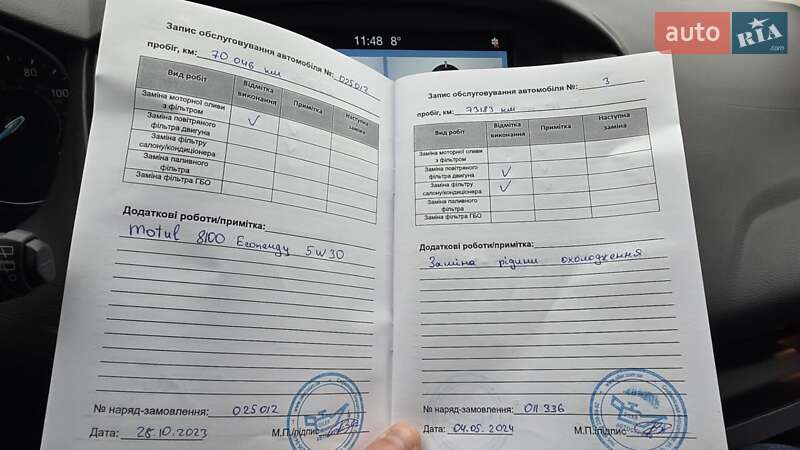 auto RIA .com
11:48 8°
80
100
Запис обслуговування автомобіля №: 025012
пробіг, км: 70 046 км
Вид робіт Відмітка виконання Примітка Наступна заміна
Заміна моторної оливи з фільтром ✓
Заміна повітряного фільтра двигуна
Заміна фільтру салону/кондиціонера
Заміна паливного фільтра
Заміна фільтра ГБО
Додаткові роботи/примітка:
Motul 8100 Econergy 5w30
№ наряд-замовлення: 025012
Дата: 28.10.2023 М.П./підпис
Запис обслуговування автомобіля №: 3
пробіг, км: 73183 км
Вид робіт Відмітка виконання Примітка Наступна заміна
Заміна моторної оливи з фільтром
Заміна повітряного фільтра двигуна ✓
Заміна фільтру салону/кондиціонера ✓
Заміна паливного фільтра
Заміна фільтра ГБО
Додаткові роботи/примітка:
Заміна рідини охолодження
№ наряд-замовлення: 011 336
Дата: 04.05.2024 М.П./підпис